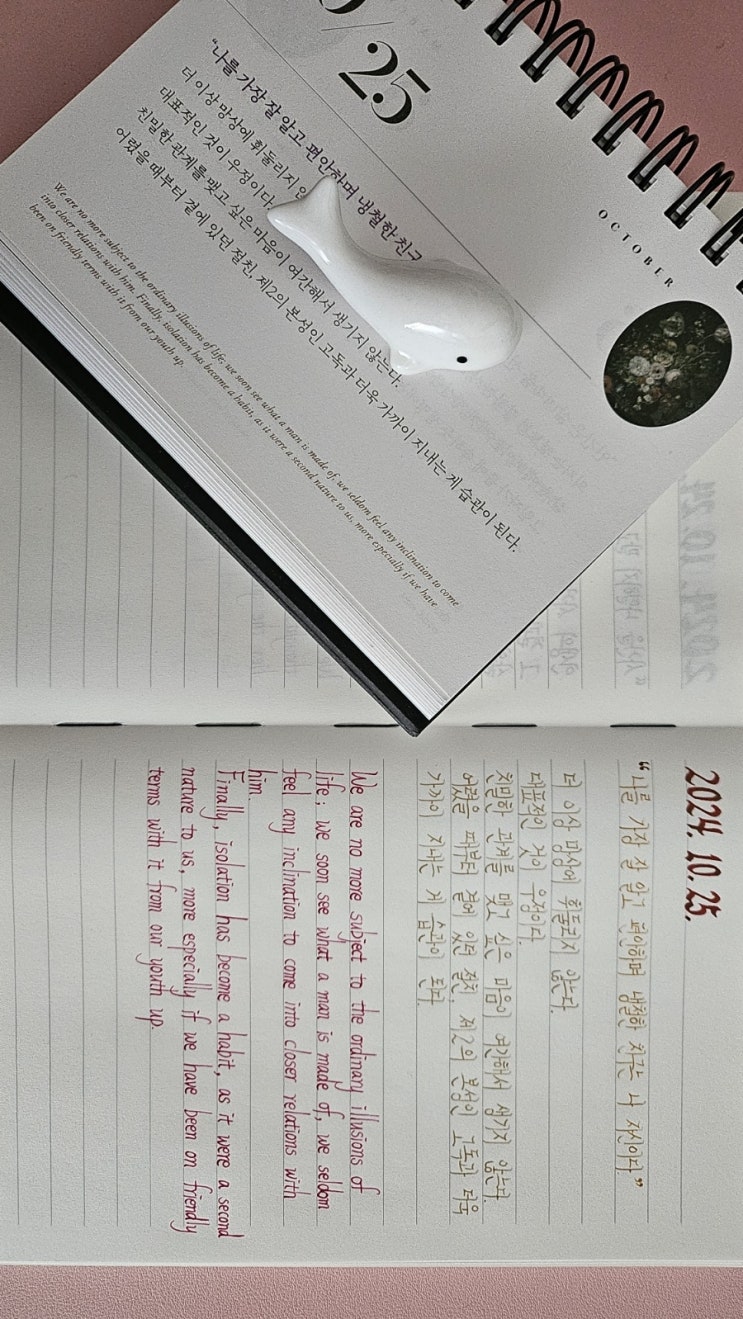 /25
OCTOBER
“나를 가장 잘 알고 편안하며 냉철한 친구
더 이상 망상에 휘둘리지 않
대표적인 것이 우정이다.
친밀한 관계를 맺고 싶은 마음이 여간해서 생기지 않는다.
어렸을 때부터 곁에 있던 절친, 제2의 본성인 고독과 더욱 가까이 지내는 게 습관이 된다.
We are no more subject to the ordinary illusions of life; we soon see what a man is made of; we seldom feel any inclination to come
into closer relations with him. Finally, isolation has become a habit, as it were a second nature to us, more especially if we have
been on friendly terms with it from our youth up.
2024. 10. 25.
“나를 가장 잘 알고 편안하며 냉철한 친구는 나 자신이다”
더 이상 망상에 휘둘리지 않는다.
대표적인 것이 우정이다.
친밀한 관계를 맺고 싶은 마음이 여간해서 생기지 않는다.
어렸을 때부터 곁에 있던 절친, 제2의 본성인 고독과 더욱
가까이 지내는 게 습관이 된다.
We are no more subject to the ordinary illusions of
life ; we soon see what a man is made of, we seldom
feel any inclination to come into closer relations with
him.
Finally, isolation has become a habit, as it were a second
nature to us, more especially if we have been on friendly
terms with it from our youth up.